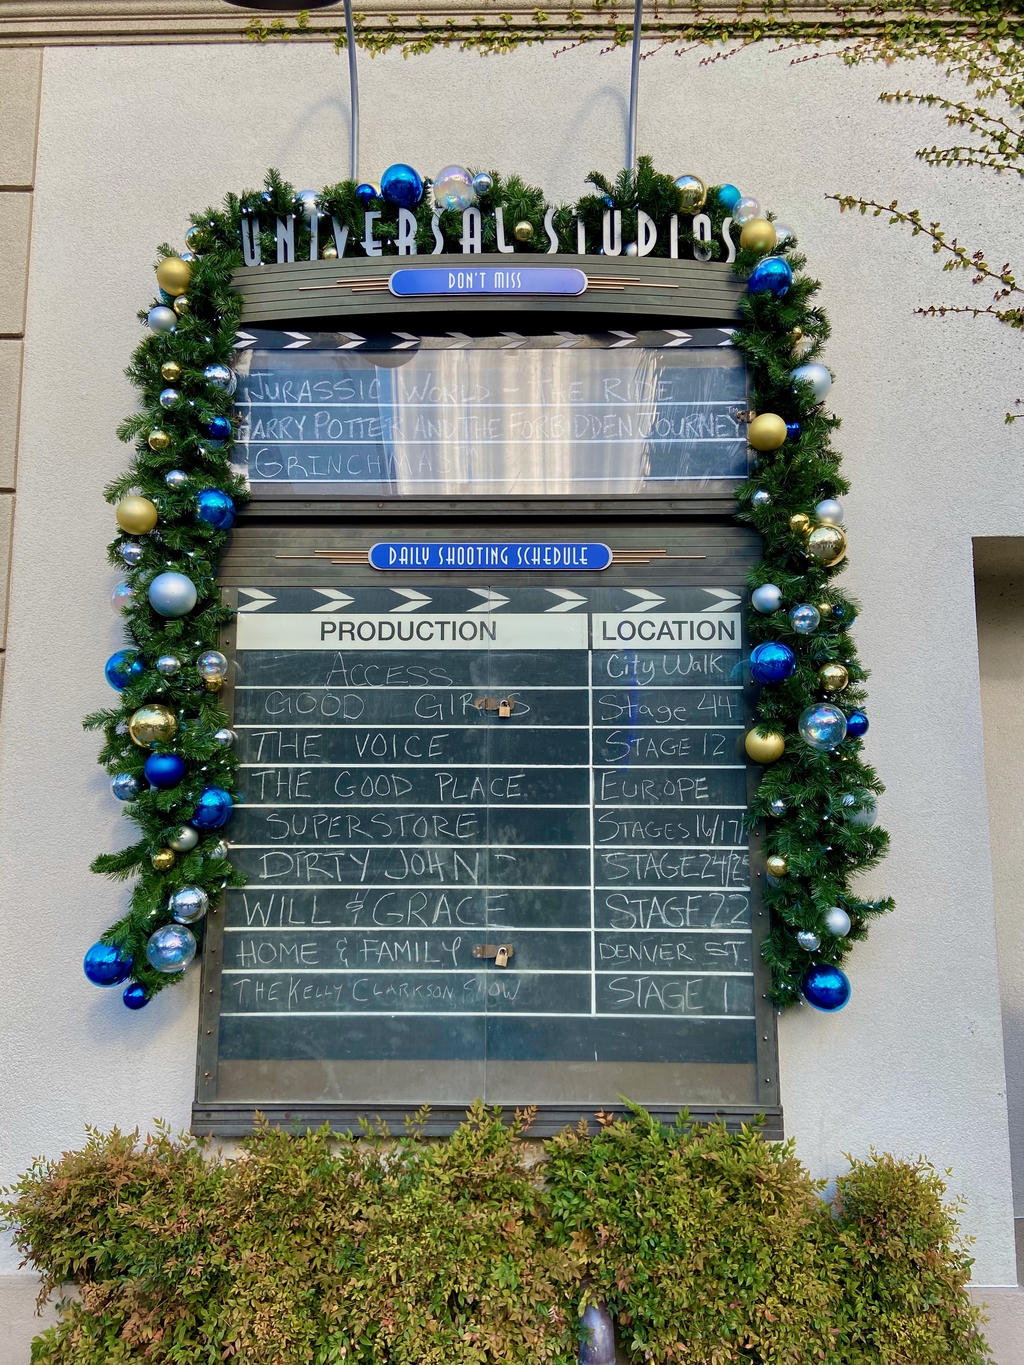 UNIVERSAL STUDIOS
DON'T MISS
JURASSIC WORLD - THE RIDE
HARRY POTTER AND THE FORBIDDEN JOURNEY
"GRINCHMAS"
DAILY SHOOTING SCHEDULE
PRODUCTION LOCATION
ACCESS City Walk
GOOD GIRLS Stage 44
THE VOICE STAGE 12
THE GOOD PLACE EUROPE
SUPERSTORE STAGES 16/17/
DIRTY JOHN STAGE 24/25
WILL & GRACE STAGE 22
HOME & FAMILY DENVER ST.
THE KELLY CLARKSON SHOW STAGE 1